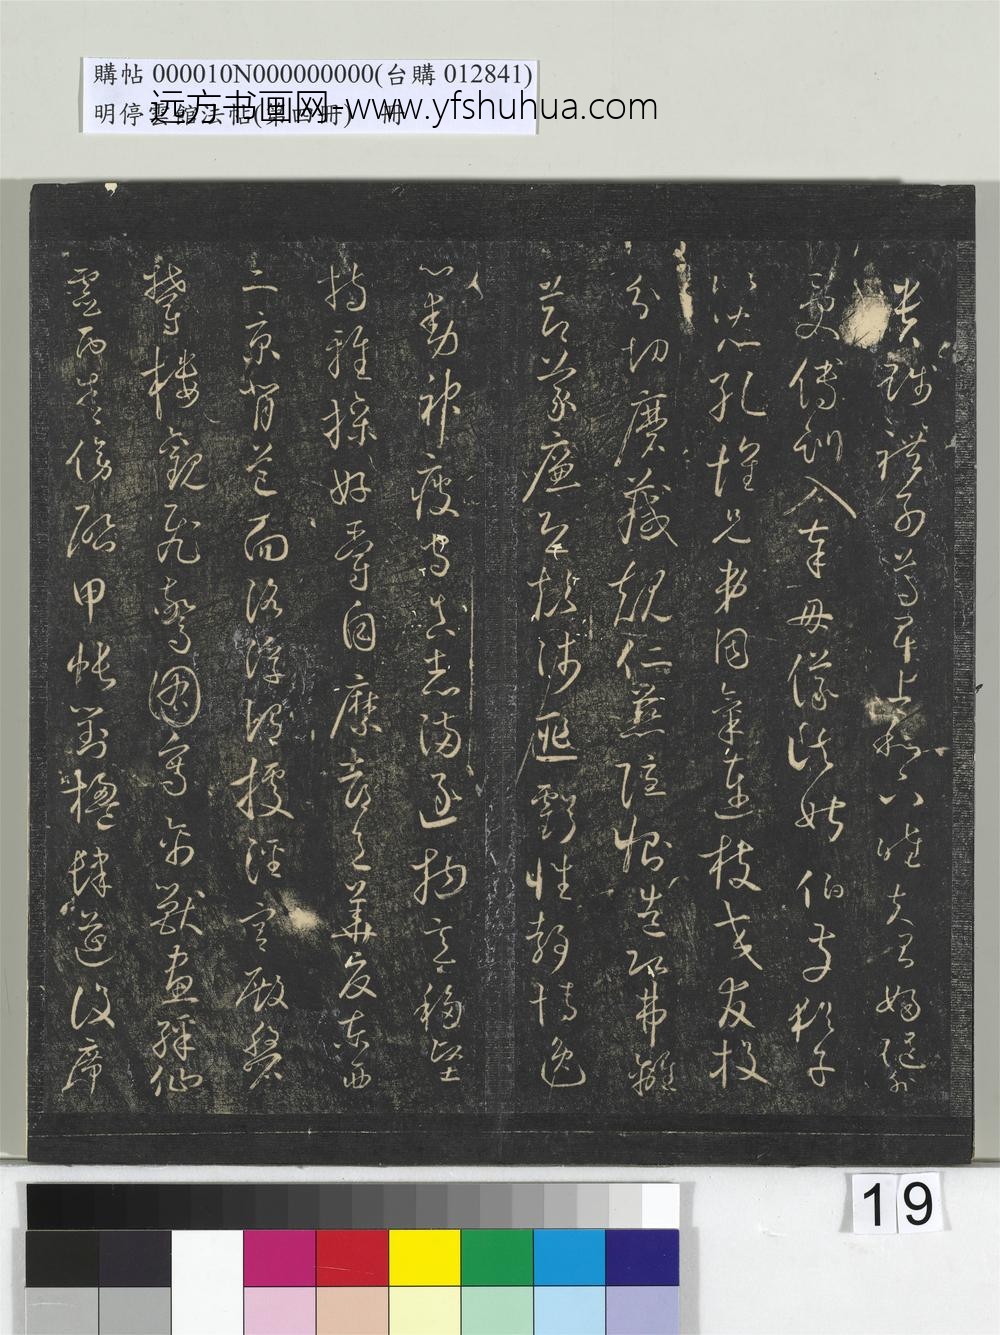 購帖 000010N000000000(台購 012841)
明停雲館法帖(第四冊) 冊
远方书画网-www.yfshuhua.com
貴賤禮別尊卑上和下睦夫唱婦隨外
受傅訓入奉母儀諸姑伯叔猶子
比兒孔懷兄弟同氣連枝交友投
分切磨箴規仁慈隱惻造次弗離
節義廉退顛沛匪虧性靜情逸
心動神疲守真志滿逐物意移堅
持雅操好爵自縻都邑華夏東西
二京背芒面洛浮渭據涇宮殿盤
鬱樓觀飛驚圖寫禽獸畫綵仙
靈丙舍傍啟甲帳對楹肆筵設席
19